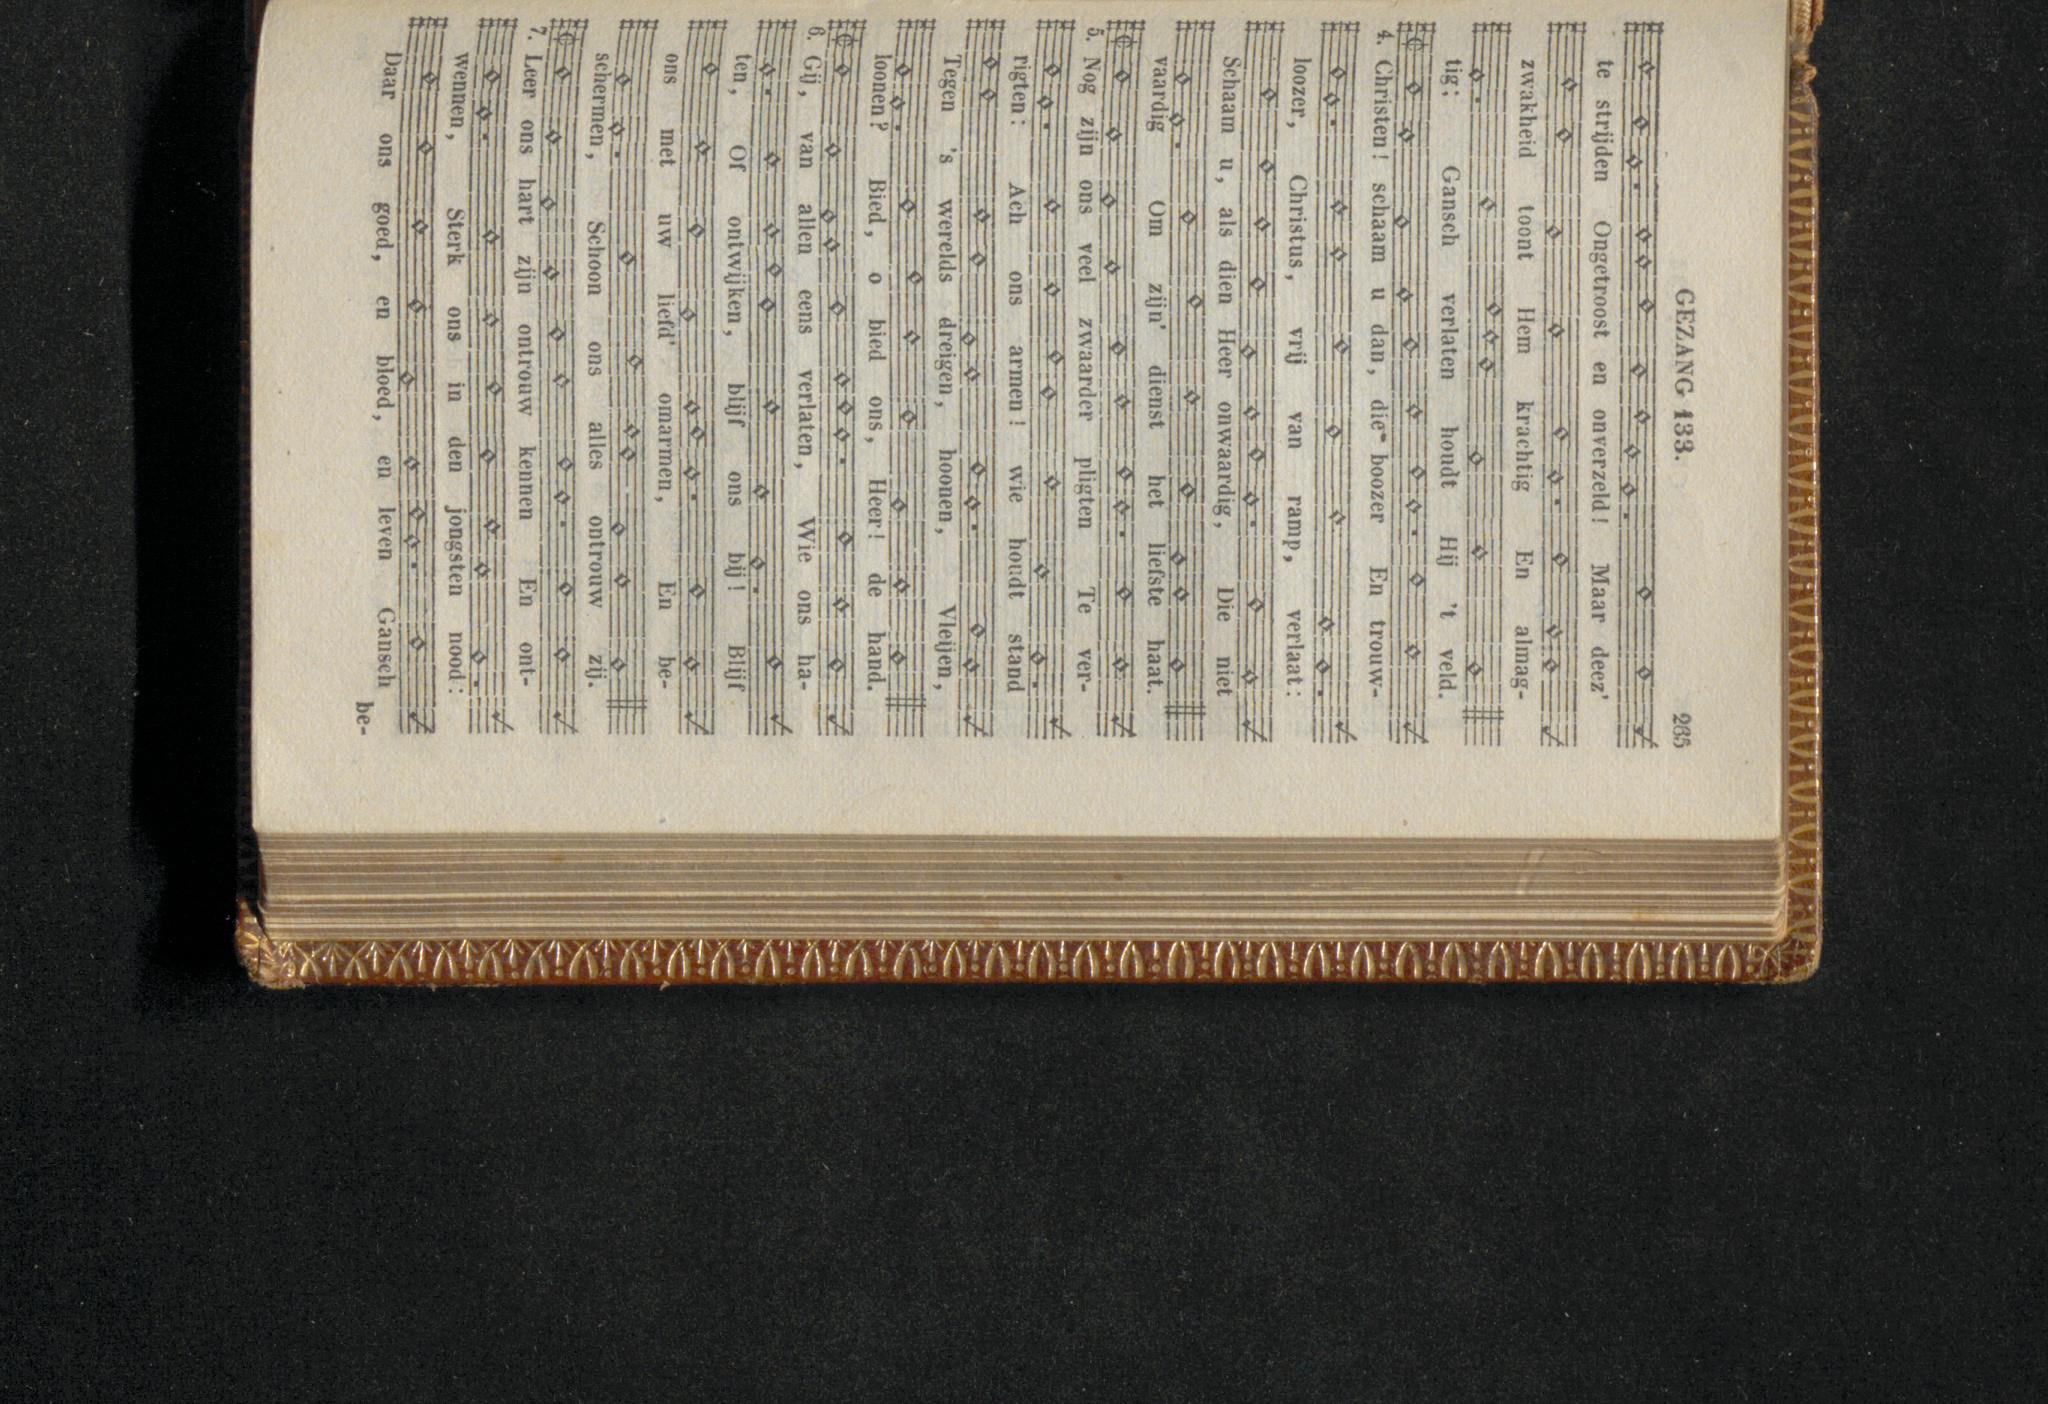 GEZANG 133. 265
te strijden Ongetroost en onverzeld! Maar deez'
zwakheid toont Hem krachtig En almag-
tig; Gansch verlaten houdt Hij 't veld.
4. Christen! schaam u dan, die boozer En trouw-
loozer, Christus, vrij van ramp, verlaat:
Schaam u, als dien Heer onwaardig, Die niet
vaardig Om zijn' dienst het liefste haat.
5. Nog zijn ons veel zwaarder pligten Te ver-
rigten: Ach ons armen! wie houdt stand
Tegen 's werelds dreigen, hoonen, Vleijen,
loonen? Bied, o bied ons, Heer! de hand.
6. Gij, van allen eens verlaten, Wie ons ha-
ten, Of ontwijken, blijf ons bij! Blijf
ons met uw liefd' omarmen, En be-
schermen, Schoon ons alles ontrouw zij.
7. Leer ons hart zijn ontrouw kennen En ont-
wennen, Sterk ons in den jongsten nood:
Daar ons goed, en bloed, en leven Gansch
be-